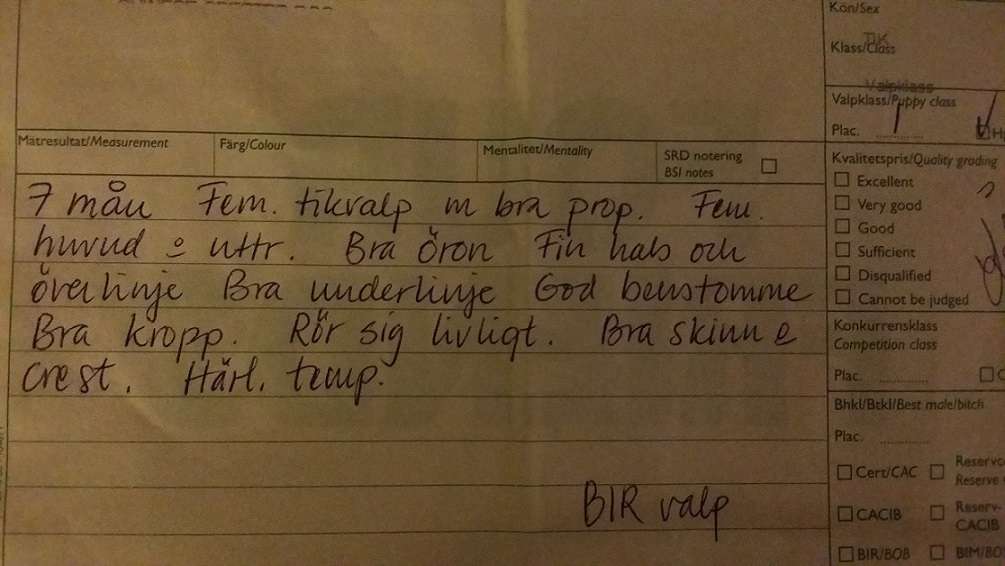 Kön/Sex
TIK
Klass/Class
Valpklass
Valpklass/Puppy class
Plac. 1
Mätresultat/Measurement Färg/Colour Mentalitet/Mentality SRD notering
BSI notes
Kvalitetspris/Quality grading
Excellent
Very good
Good
Sufficient
Disqualified
Cannot be judged
7 mån Fem. tikvalp m bra prop. Fem.
huvud o uttr. Bra öron Fin hals och
överlinje Bra underlinje God benstomme
Bra kropp. Rör sig livligt. Bra skinn o
crest. Härl. temp.
BIR valp
Konkurrensklass
Competition class
Plac.
Bhkl/Btkl/Best male/bitch
Plac.
Cert/CAC
Reserve
CACIB Reserv-
CACIB
BIR/BOB BIM/BO